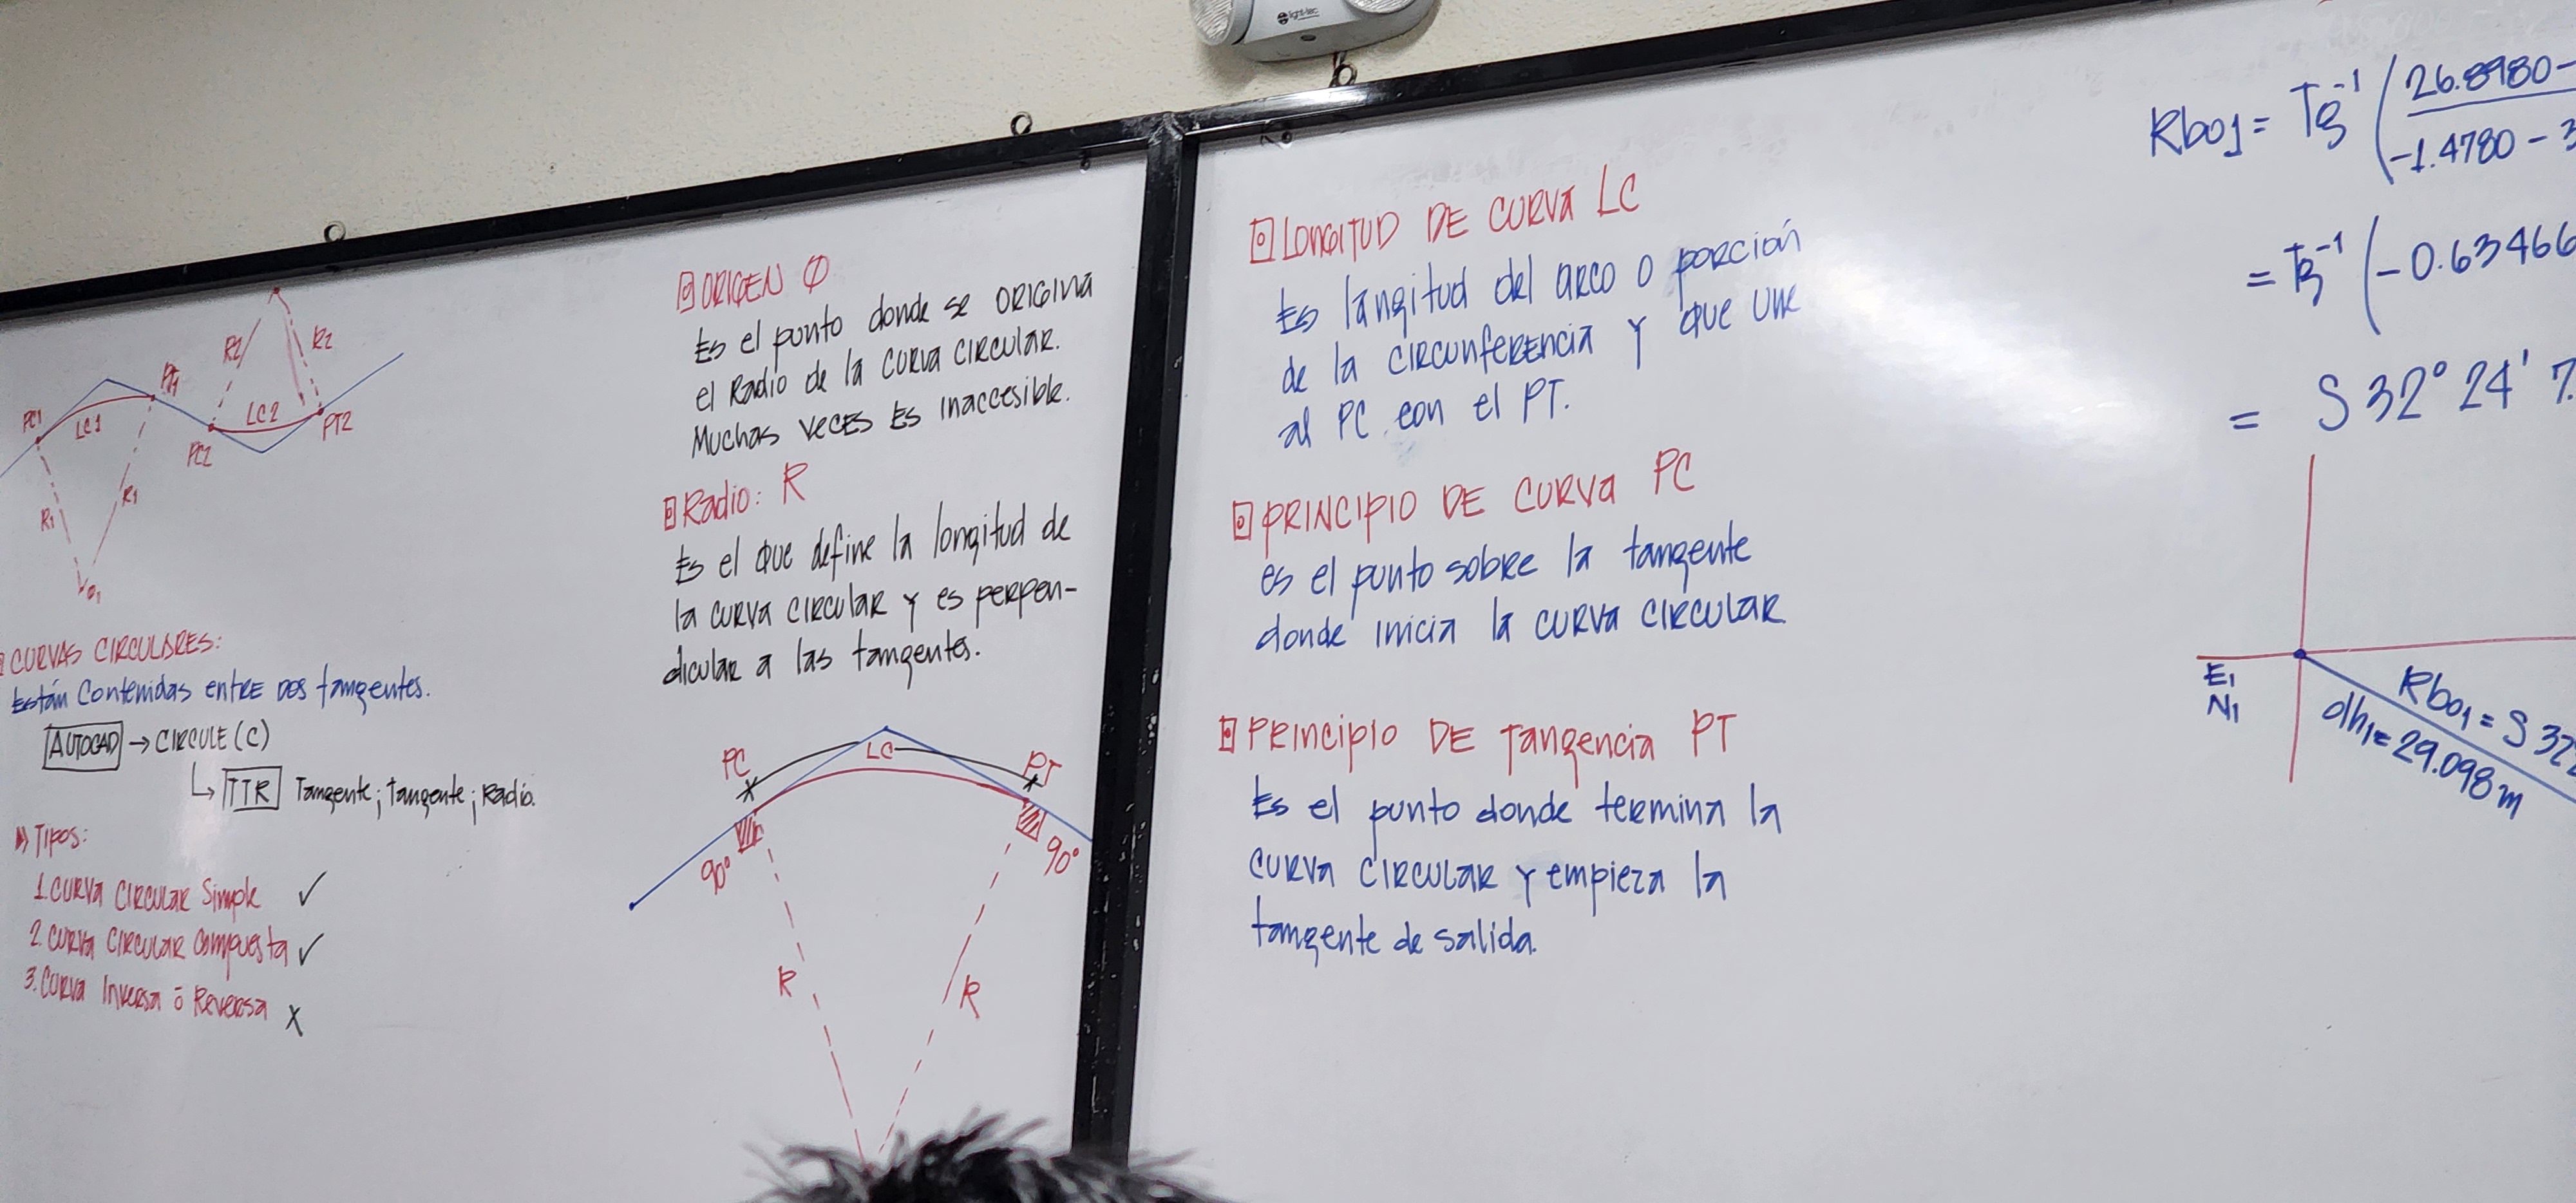 light-tec
R2
R2
PC1
LC1
PT1
LC2
PC2
PT2
R1
R1
O1
CURVAS CIRCULARES:
Están Contenidas entre Dos tangentes.
AUTOCAD → CIRCULE (C)
TTR Tangente; Tangente; Radio.
Tipos:
1. CURVA CIRCULAR Simple ✓
2. CURVA CIRCULAR Compuesta ✓
3. CURVA Inversa ó Reversa X
ORIGEN Ø
Es el punto donde se ORIGINA
el Radio de la CURVA CIRCULAR.
Muchas veces Es Inaccesible.
Radio: R
Es el que define la longitud de
la CURVA CIRCULAR y es perpen-
dicular a las tangentes.
PC
LC
PT
90°
90°
R
R
LONGITUD DE CURVA LC
Es langitud del arco o porción
de la CIRCUNFERENCIA Y que une
al PC con el PT.
PRINCIPIO DE CURVA PC
es el punto sobre la tangente
donde inicia la CURVA CIRCULAR
PRINCIPIO DE Tangencia PT
Es el punto donde termina la
CURVA CIRCULAR y empieza la
tangente de salida.
Rbo1 = Tg-1 ( 26.8980 -
-1.4780 - 3
= Tg-1 ( -0.63466
= S 32° 24' 7.
E1
N1
Rbo1 = S 32
dh1 = 29.098 m